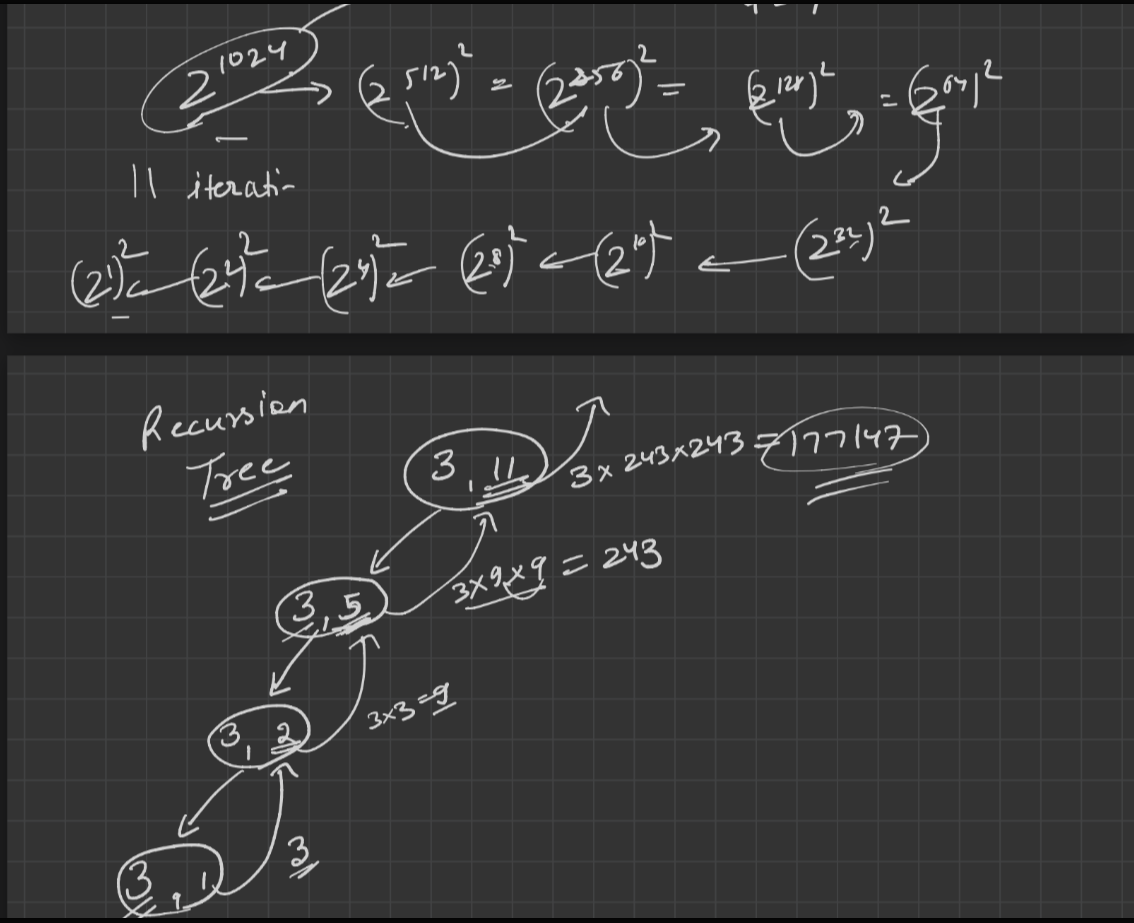 2^1024 → (2^512)^2 = (2^256)^2 = (2^128)^2 = (2^64)^2
11 iterati-
(2^1)^2 ← (2^2)^2 ← (2^4)^2 ← (2^8)^2 ← (2^16)^2 ← (2^32)^2
Recursion
Tree
3, 11
3 × 243 × 243 = 177147
3×9×9 = 243
3, 5
3×3=9
3, 2
3
3, 1